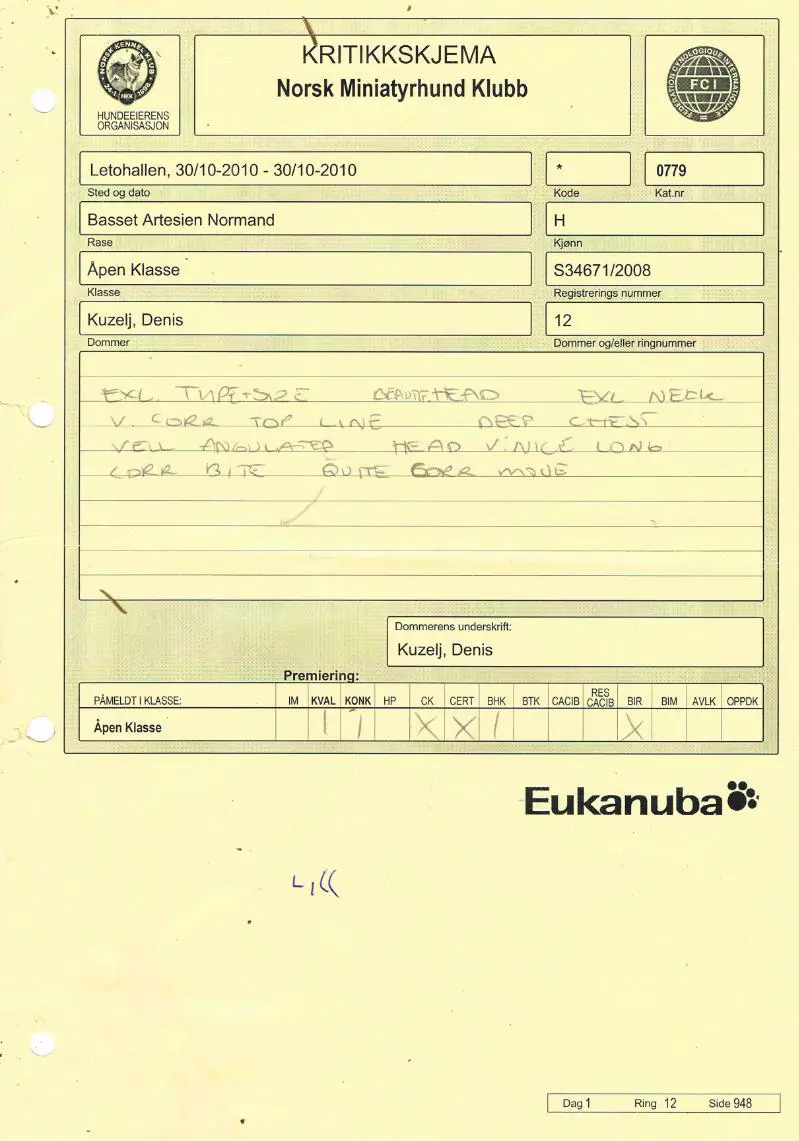 KRITIKKSKJEMA
Norsk Miniatyrhund Klubb
NORSK KENNEL KLUB
HUNDEEIERENS
ORGANISASJON
FEDERATION CYNOLOGIQUE INTERNATIONALE
FCI
Letohallen, 30/10-2010 - 30/10-2010
*
0779
Sted og dato
Kode
Kat.nr
Basset Artesien Normand
H
Rase
Kjønn
Åpen Klasse
S34671/2008
Klasse
Registrerings nummer
Kuzelj, Denis
12
Dommer
Dommer og/eller ringnummer
EXL. TYPE+SIZE BEAUTIF. HEAD EXL NECK
V. CORR TOP LINE DEEP CHEST
VELL ANGULATED HEAD V. NICE LONG
CORR BITE QUITE CORR MOVE
Dommerens underskrift:
Kuzelj, Denis
Premiering:
PÅMELDT I KLASSE: IM KVAL KONK HP CK CERT BHK BTK CACIB RES CACIB BIR BIM AVLK OPPDK
Åpen Klasse 1 1 X X 1 X
Eukanuba
Dag 1 Ring 12 Side 948